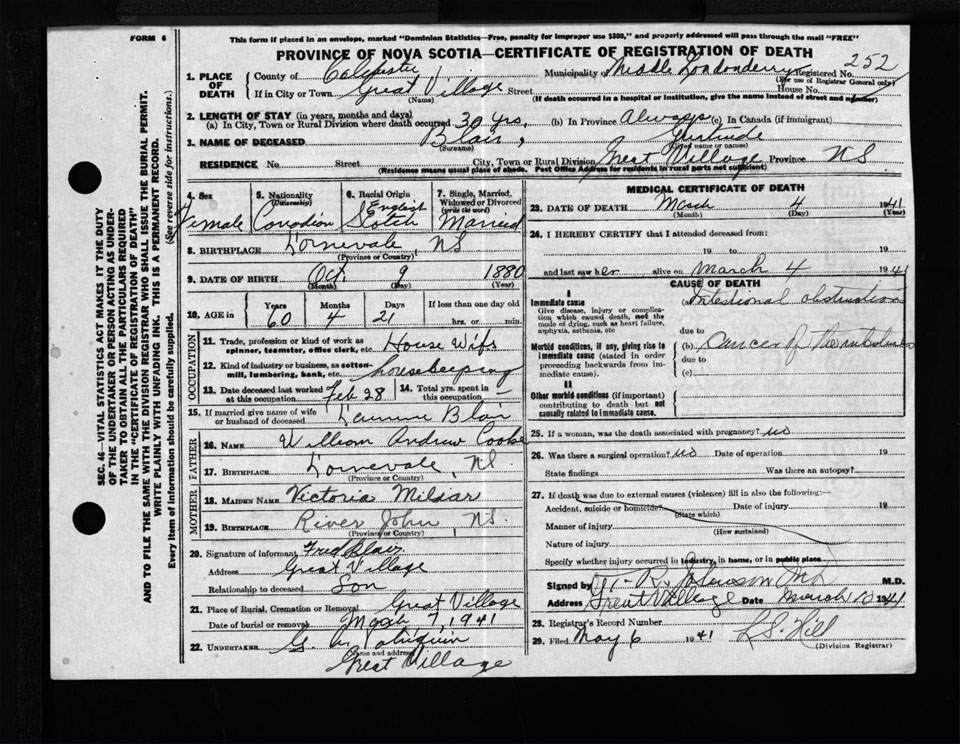 FORM 6
This form if placed in an envelope, marked "Dominion Statistics—Free, penalty for improper use $300," and properly addressed will pass through the mail "FREE"
PROVINCE OF NOVA SCOTIA—CERTIFICATE OF REGISTRATION OF DEATH
252
1. PLACE OF DEATH
County of Colchester Municipality of Middle Londonderry Registered No.
(For use of Registrar General only)
If in City or Town Great Village Street House No.
(Name) (If death occurred in a hospital or institution, give the name instead of street and number)
2. LENGTH OF STAY (in years, months and days)
(a) In City, Town or Rural Division where death occurred 30 yrs. (b) In Province Always (c) In Canada (if immigrant)
3. NAME OF DECEASED Blair, Gertrude
(Surname) (Given name or names)
RESIDENCE No. Street City, Town or Rural Division Great Village Province NS
(Residence means usual place of abode. Post Office Address for residents in rural parts not sufficient)
4. Sex Female
5. Nationality (Citizenship) Canadian
6. Racial Origin English Scotch
7. Single, Married, Widowed or Divorced (write the word) Married
8. BIRTHPLACE Lornevale, NS
(Province or Country)
9. DATE OF BIRTH Oct 9 1880
(Month) (Day) (Year)
10. AGE in Years Months Days If less than one day old
60 4 21 hrs. or min.
OCCUPATION
11. Trade, profession or kind of work as spinner, teamster, office clerk, etc. House Wife
12. Kind of industry or business, as cotton-mill, lumbering, bank, etc. Housekeeping
13. Date deceased last worked at this occupation Feb 28
14. Total yrs. spent in this occupation
15. If married give name of wife or husband of deceased Blair
FATHER
16. NAME William Andrew Cooke
17. BIRTHPLACE Lornevale, NS.
(Province or Country)
MOTHER
18. MAIDEN NAME Victoria Millar
19. BIRTHPLACE River John, NS.
(Province or Country)
20. Signature of informant Fred Blair
Address Great Village
Relationship to deceased Son
21. Place of Burial, Cremation or Removal Great Village
Date of burial or removal March 7, 1941
22. UNDERTAKER G.
(Name and address)
Great Village
MEDICAL CERTIFICATE OF DEATH
23. DATE OF DEATH March 4 1941
(Month) (Day) (Year)
24. I HEREBY CERTIFY that I attended deceased from:
19 to 19
and last saw her alive on March 4 1941
CAUSE OF DEATH
I
Immediate cause
Give disease, injury or complication which caused death, not the mode of dying, such as heart failure, asphyxia, asthenia, etc
(a) Intestional obstruction
due to
Morbid conditions, if any, giving rise to immediate cause (stated in order proceeding backwards from immediate cause).
(b) Cancer of the
due to
(c)
II
Other morbid conditions (if important) contributing to death but not causally related to immediate cause.
25. If a woman, was the death associated with pregnancy? no
26. Was there a surgical operation? no Date of operation 19
State findings Was there an autopsy?
27. If death was due to external causes (violence) fill in also the following:—
Accident, suicide or homicide? Date of injury 19
(State which)
Manner of injury
(How sustained)
Nature of injury
Specify whether injury occurred in industry, in home, or in public place
Signed by T. R. Johnson MD M.D.
Address Great Village Date March 10 1941
28. Registrar's Record Number
29. Filed May 6 1941 L.S. Hill
(Division Registrar)
SEC. 46—VITAL STATISTICS ACT MAKES IT THE DUTY
OF THE UNDERTAKER OR PERSON ACTING AS UNDER-
TAKER TO OBTAIN ALL THE PARTICULARS REQUIRED
IN "CERTIFICATE OF REGISTRATION OF DEATH"
AND TO FILE THE SAME WITH THE DIVISION REGISTRAR WHO SHALL ISSUE THE BURIAL PERMIT.
WRITE PLAINLY WITH UNFADING INK. THIS IS A PERMANENT RECORD.
Every item of information should be carefully supplied. (See reverse side for instructions.)